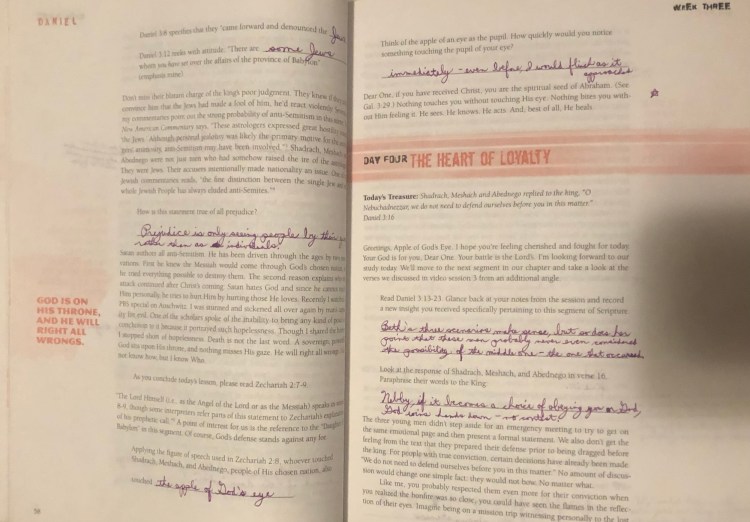 DANIEL
Daniel 3:8 specifies that they "came forward and denounced the Jews
Daniel 3:12 reeks with attitude. "There are some Jews
whom you have set over the affairs of the province of Babylon"
(emphatic mine)
Don't miss their blatant charge of the king's poor judgment. They knew if they
convince him that the Jews had made a fool of him, he'd react violently.
my commentaries point out the strong probability of anti-Semitism in this
New American Commentary says, "These astrologers expressed great hostility
the Jews. Although personal jealousy was likely the primary motive for the
anti-Semitism may have been involved." Shadrach, Meshach
Abednego were not just men who had somehow raised the ire of the
They were Jews. Their accusers intentionally made nationality an issue. One
Jewish commentaries reads, "the fine distinction between the single Jew and
whole Jewish People has always eluded anti-Semites."
How is this statement true of all prejudice?
Prejudice is only seeing people by their
rather than as individuals!
Satan authors all anti-Semitism. He has been driven through the ages by two
First he knew the Messiah would come through God's chosen
he tried everything possible to destroy them. The second reason explains why
attack continued after Christ's coming. Satan hates God and since he cannot
Him personally, he tries to hurt Him by hurting those He loves. Recently I watched
PBS special on Auschwitz. I was stunned and sickened all over again by man's
for evil. One of the scholars spoke of the inability to bring any kind of
conclusion to it because it portrayed such hopelessness. Though I shared the
I stopped short of hopelessness. Death is not the last word. A sovereign,
God sits upon His throne, and nothing misses His gaze. He will right all wrongs. I
not know how, but I know Who.
GOD IS ON
HIS THRONE,
AND HE WILL
RIGHT ALL
WRONGS.
As you conclude today's lesson, please read Zechariah 2:7-9.
"The Lord Himself (i.e., as the Angel of the Lord or as the Messiah) speaks in
8-9, though some interpreters refer parts of this statement to Zechariah's
of his prophetic call." A point of interest for us is the reference to the "Daughter
Babylon" in this segment. Of course, God's defense stands against any foe.
Applying the figure of speech used in Zechariah 2:8, whoever touched
Shadrach, Meshach, and Abednego, people of His chosen nation, also
touched the apple of God's eye
WEEK THREE
Think of the apple of an eye as the pupil. How quickly would you notice
something touching the pupil of your eye?
immediately - even before, I would flinch as it
approached
Dear One, if you have received Christ, you are the spiritual seed of Abraham. (See
Gal. 3:29.) Nothing touches you without touching His eye. Nothing hurts you with-
out Him feeling it. He sees. He knows. He acts. And, best of all, He heals.
DAY FOUR THE HEART OF LOYALTY
Today's Treasure: Shadrach, Meshach and Abednego replied to the king, "O
Nebuchadnezzar, we do not need to defend ourselves before you in this matter."
Daniel 3:16
Greetings, Apple of God's Eye. I hope you're feeling cherished and fought for today.
Your God is for you, Dear One. Your battle is the Lord's. I'm looking forward to our
study today. We'll move to the next segment in our chapter and take a look at the
verses we discussed in video session 3 from an additional angle.
Read Daniel 3:13-23. Glance back at your notes from the session and record
a new insight you received specifically pertaining to this segment of Scripture.
Beth's three scenarios make sense, but so does her
point that these men probably never even considered
the possibility of the middle one - the one that occurred
Look at the response of Shadrach, Meshach, and Abednego in verse 16.
Paraphrase their words to the King:
Nebby, if it becomes a choice of obeying you or God,
God wins hands down - no contest!
The three young men didn't step aside for an emergency meeting to try to get on
the same emotional page and then present a formal statement. We also don't get the
feeling from the text that they prepared their defense prior to being dragged before
the king. For people with true conviction, certain decisions have already been made.
"We do not need to defend ourselves before you in this matter." No amount of discus-
sion would change one simple fact: they would not bow. No matter what.
Like me, you probably respected them even more for their conviction when
you realized the bonfire was so close, you could have seen the flames in the reflec-
tion of their eyes. Imagine being on a mission trip witnessing personally to the lost